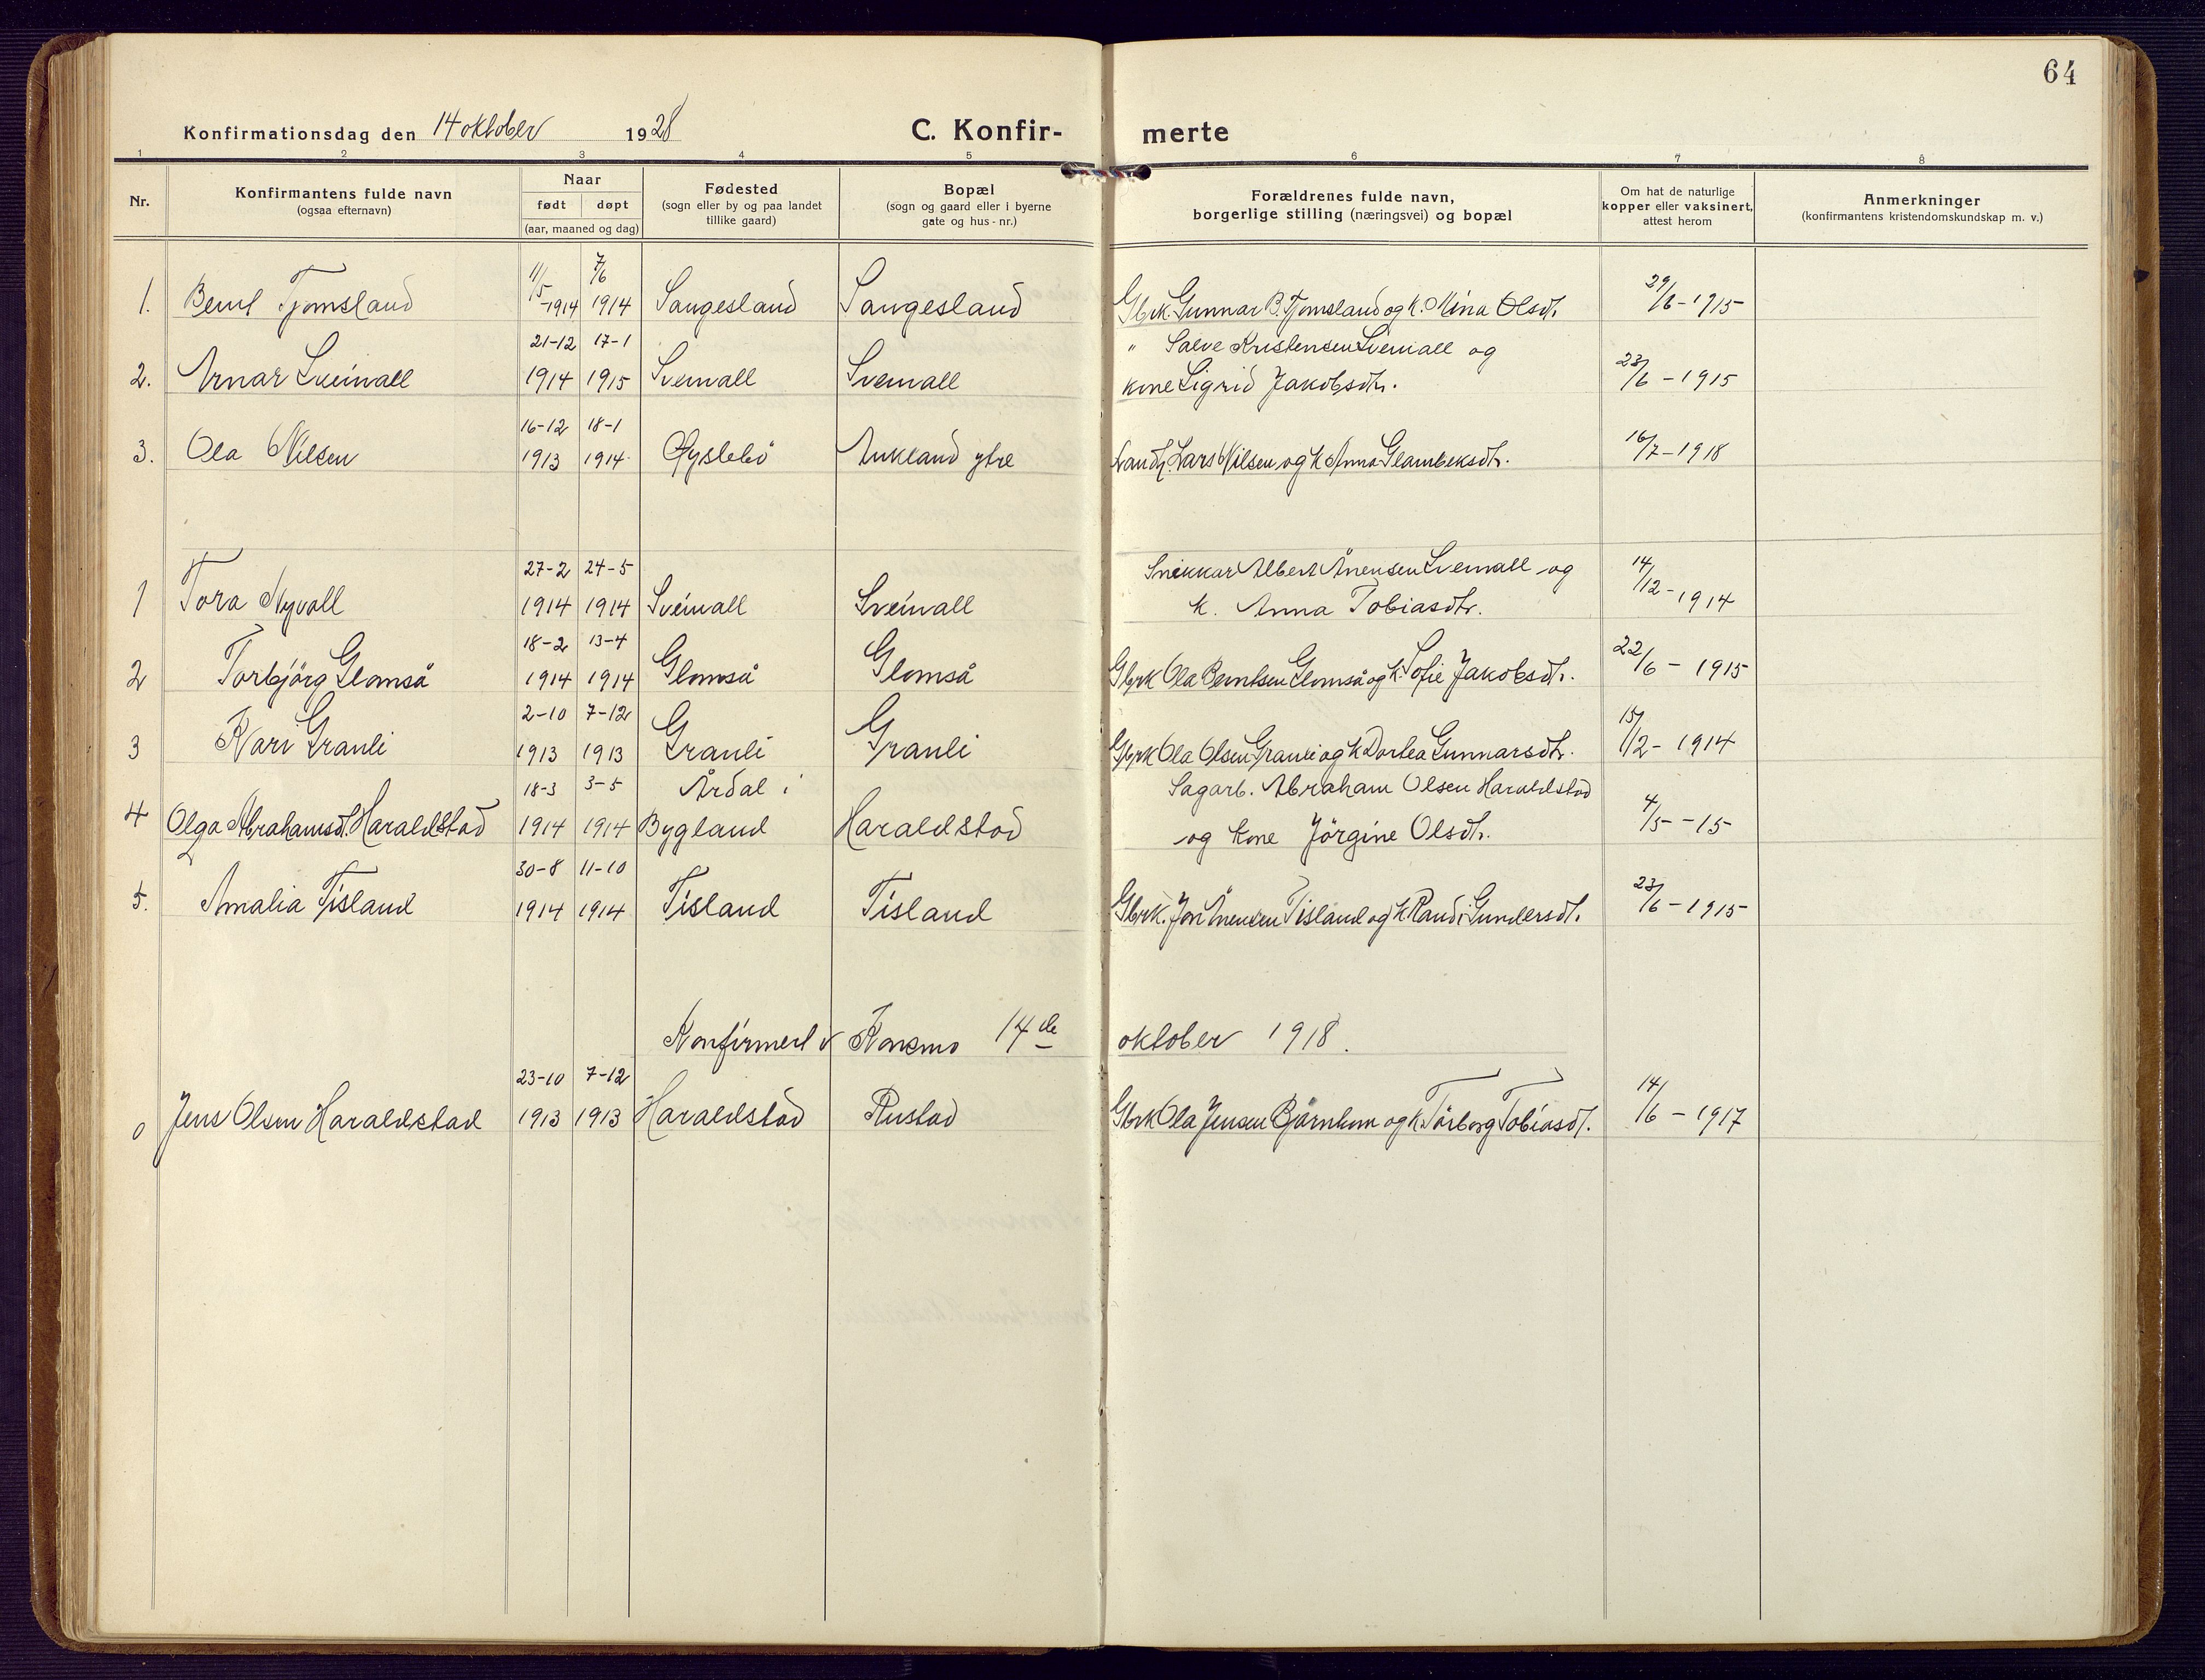 64
Konfirmationsdag den 14 oktober 1928 C. Konfir- merte
1 2 3 4 5 6 7 8
Nr. Konfirmantens fulde navn (ogsaa efternavn) Naar født døpt (aar, maaned og dag) Fødested (sogn eller by og paa landet tillike gaard) Bopæl (sogn og gaard eller i byerne gate og hus-nr.) Forældrenes fulde navn, borgerlige stilling (næringsvei) og bopæl Om hat de naturlige kopper eller vaksinert, attest herom Anmerkninger (konfirmantens kristendomskundskap m. v.)
11/5 7/6 29/6-1915
1. Bernt Tjomsland -1914 1914 Saugesland Saugesland Gbrk. Gunnar B. Tjomsland og k. Mina Olsdt.
21-12 17-1 " Salve Kristensen Sveinall og
2. Arnar Sveinall 1914 1915 Sveinall Sveinall kone Sigrid Jakobsdtr. 23/6-1915
16-12 18-1
3. Ola Nilsen 1913 1914 Øyslebö Aukland ytre Landh. Lars Nilsen og k Anna Glambeksdtr. 16/7-1918
27-2 24-5 Snekkar Albert Ånensen Sveinall og
1 Tora Nyvoll 1914 1914 Sveinall Sveinall k. Anna Tobiasdtr. 14/12-1914
18-2 13-4
2 Torbjörg Glomså 1914 1914 Glomså Glomså Gbrk Ola Berntsen Glomså og k. Sofie Jakobsdtr. 22/6-1915
2-10 7-12
3 Kari Granli 1913 1913 Granli Granli Gbrk Ola Olsen Granli og k Dortea Gunnarsdtr. 15/12-1914
18-3 3-5 Årdal i Sagarb. Abraham Olsen Haraldstad
4 Olga Abrahamsdt. Haraldstad 1914 1914 Bygland Haraldstad og kone Jörgine Olsdtr. 4/5-15
30-8 11-10
5. Amalia Tisland 1914 1914 Tisland Tisland Gbrk. Jon Ånensen Tisland og k Randi Gundersdt. 23/6-1915
Konfirmert i Konsmo 14de oktober 1918.
23-10 7-12
0 Jens Olsen Haraldstad 1913 1913 Haraldstad Rustad Gbrk Ola Jensen Bjärnhom og k. Torborg Tobiasdt. 14/6-1917